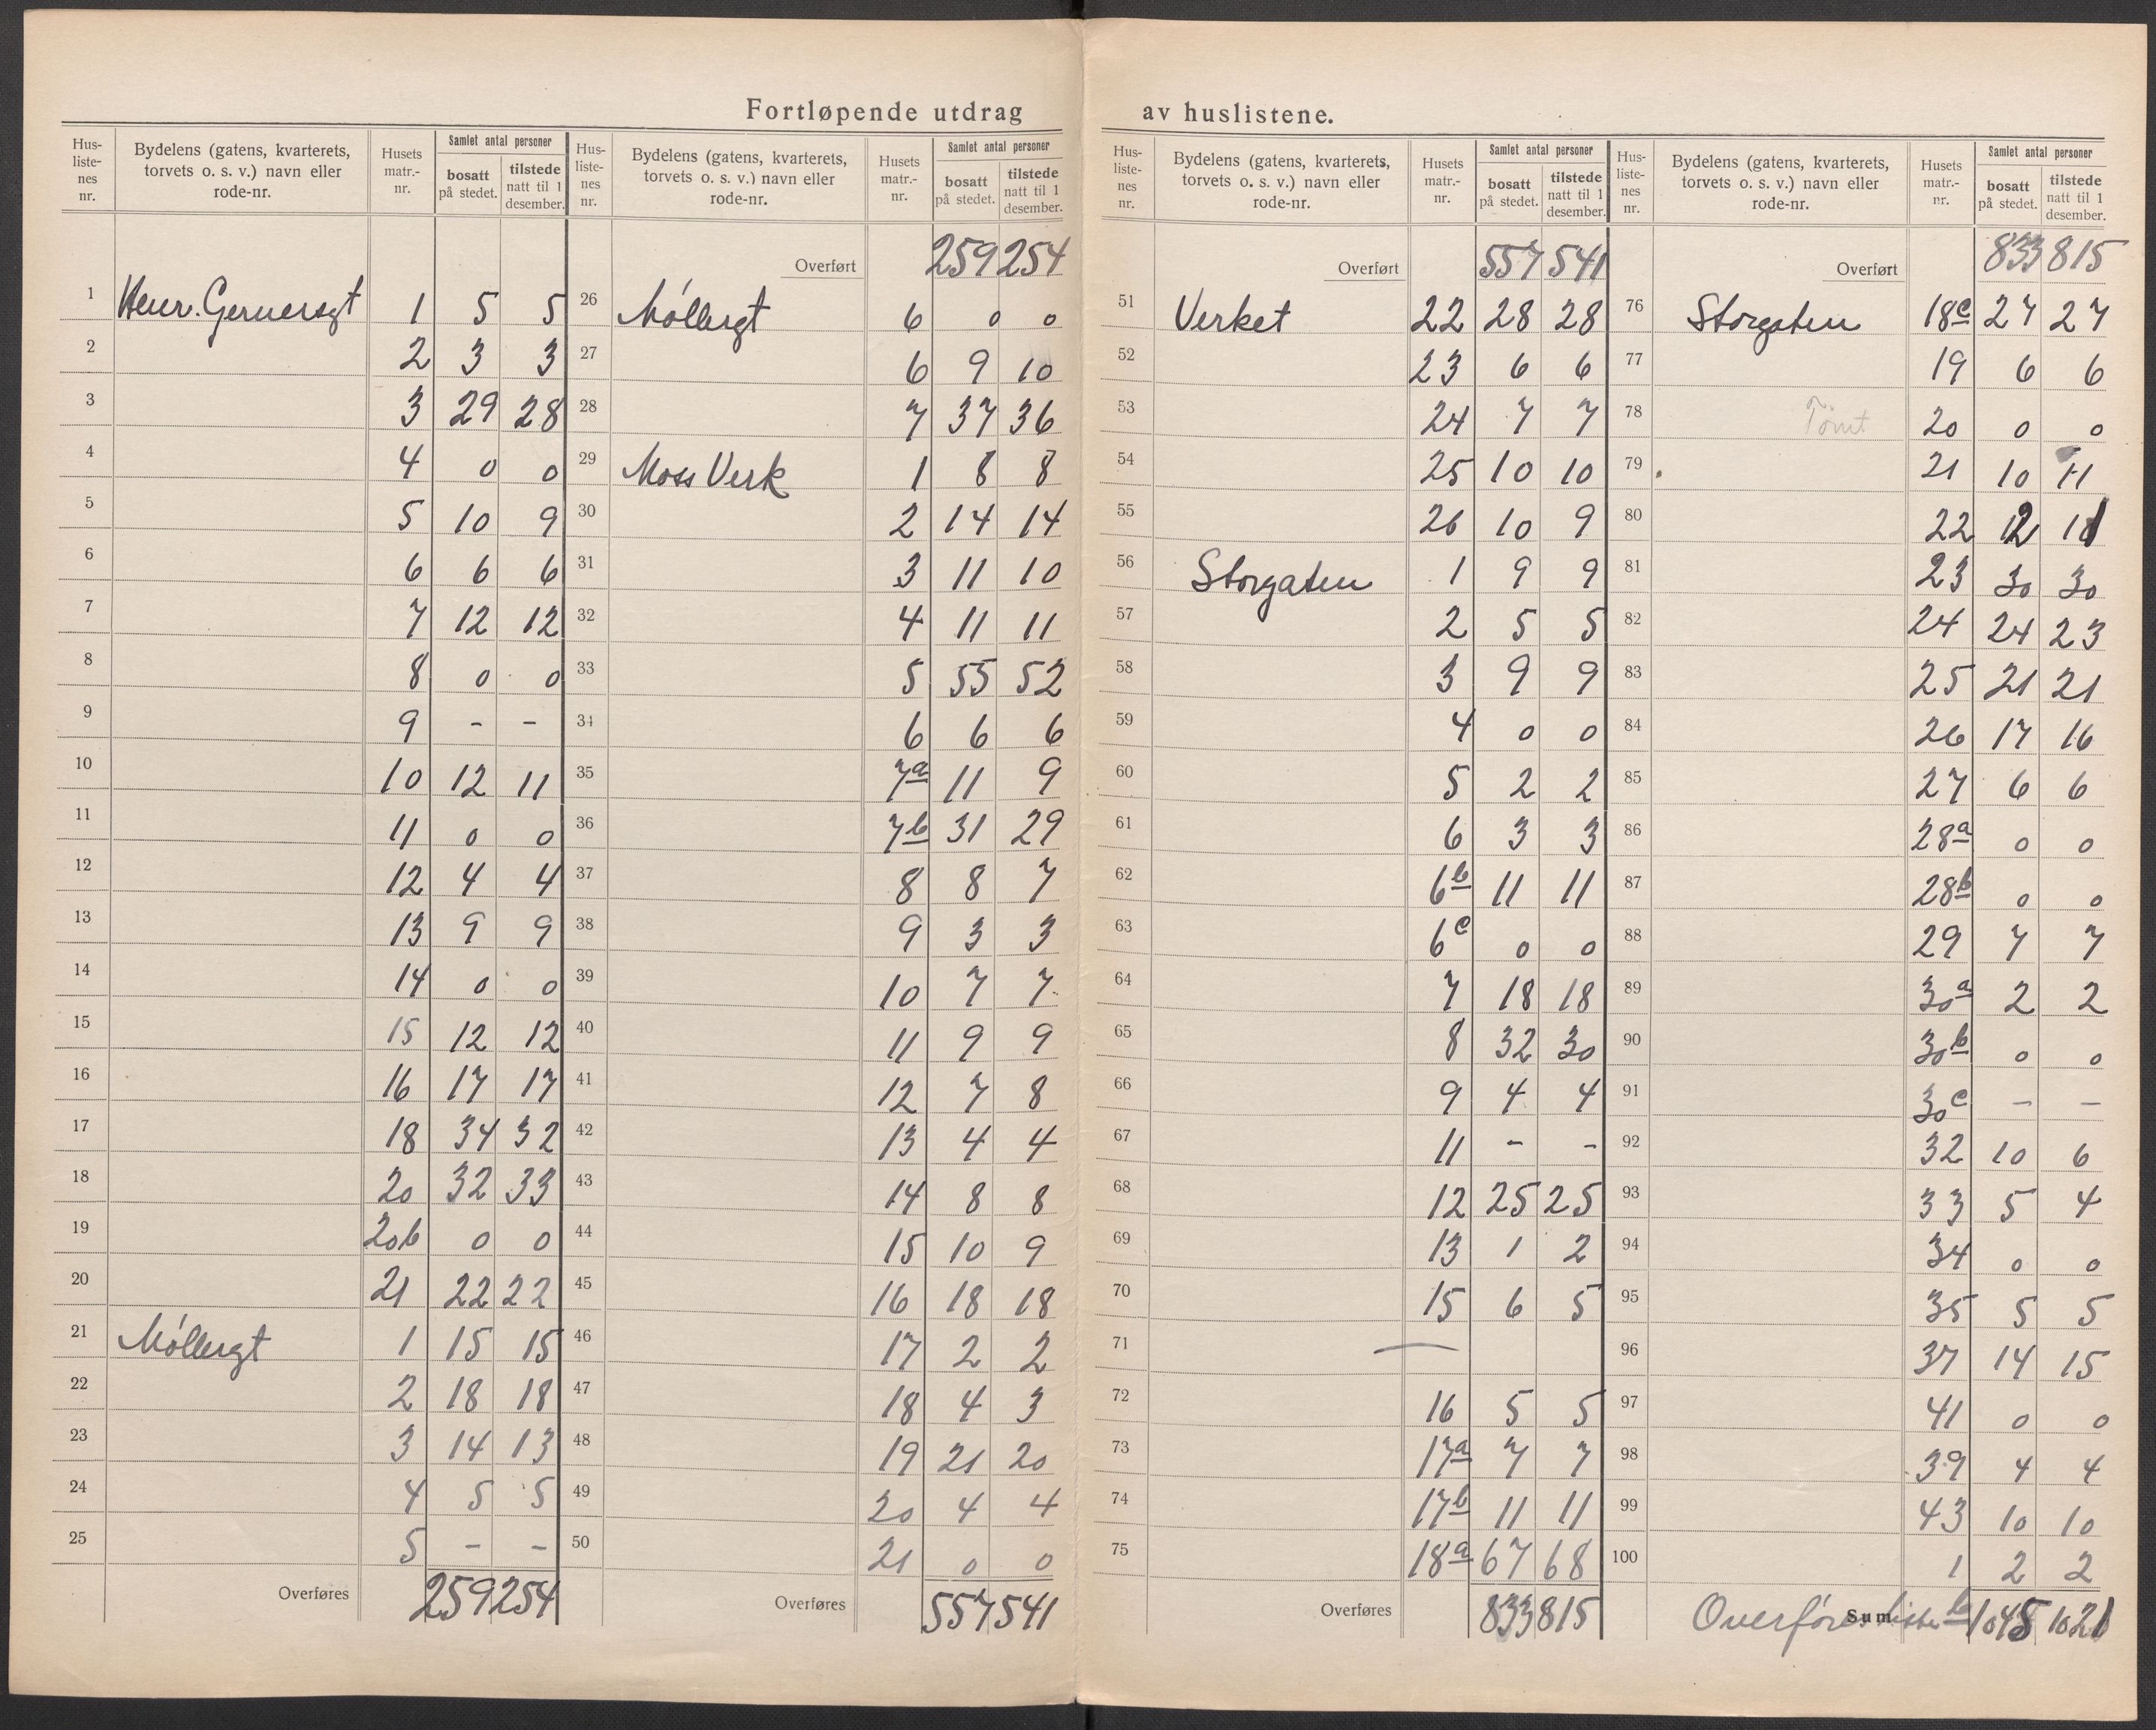 Fortløpende utdrag av huslistene.
Hus-listenes nr. | Bydelens (gatens, kvarterets, torvets o. s. v.) navn eller rode-nr. | Husets matr.-nr. | Samlet antal personer bosatt på stedet. | tilstede natt til 1 desember.
1 Henr. Gernersgt 1 5 5
2 2 3 3
3 3 29 28
4 4 0 0
5 5 10 9
6 6 6 6
7 7 12 12
8 8 0 0
9 9 - -
10 10 12 11
11 11 0 0
12 12 4 4
13 13 9 9
14 14 0 0
15 15 12 12
16 16 17 17
17 18 34 32
18 20 32 33
19 20b 0 0
20 21 22 22
21 Møllergt 1 15 15
22 2 18 18
23 3 14 13
24 4 5 5
25 5 - -
Overføres 259 254
Hus-listenes nr. | Bydelens (gatens, kvarterets, torvets o. s. v.) navn eller rode-nr. | Husets matr.-nr. | Samlet antal personer bosatt på stedet. | tilstede natt til 1 desember.
Overført 259 254
26 Møllergt 6 0 0
27 6 9 10
28 7 37 36
29 Moss Verk 1 8 8
30 2 14 14
31 3 11 10
32 4 11 11
33 5 55 52
34 6 6 6
35 7a 11 9
36 7b 31 29
37 8 8 7
38 9 3 3
39 10 7 7
40 11 9 9
41 12 7 8
42 13 4 4
43 14 8 8
44 15 10 9
45 16 18 18
46 17 2 2
47 18 4 3
48 19 21 20
49 20 4 4
50 21 0 0
Overføres 557 541
Hus-listenes nr. | Bydelens (gatens, kvarterets, torvets o. s. v.) navn eller rode-nr. | Husets matr.-nr. | Samlet antal personer bosatt på stedet. | tilstede natt til 1 desember.
Overført 557 541
51 Verket 22 28 28
52 23 6 6
53 24 7 7
54 25 10 10
55 26 10 9
56 Storgaten 1 9 9
57 2 5 5
58 3 9 9
59 4 0 0
60 5 2 2
61 6 3 3
62 6b 11 11
63 6c 0 0
64 7 18 18
65 8 32 30
66 9 4 4
67 11 - -
68 12 25 25
69 13 1 2
70 15 6 5
71 —
72 16 5 5
73 17a 7 7
74 17b 11 11
75 18a 67 68
Overføres 833 815
Hus-listenes nr. | Bydelens (gatens, kvarterets, torvets o. s. v.) navn eller rode-nr. | Husets matr.-nr. | Samlet antal personer bosatt på stedet. | tilstede natt til 1 desember.
Overført 833 815
76 Storgaten 18c 27 27
77 19 6 6
78 Tomt 20 0 0
79 21 10 11
80 22 12 11
81 23 30 30
82 24 24 23
83 25 21 21
84 26 17 16
85 27 6 6
86 28a 0 0
87 28b 0 0
88 29 7 7
89 30a 2 2
90 30b 0 0
91 30c - -
92 32 10 6
93 33 5 4
94 34 0 0
95 35 5 5
96 37 14 15
97 41 0 0
98 39 4 4
99 43 10 10
100 1 2 2
Overføres liste b Sum 1045 1021